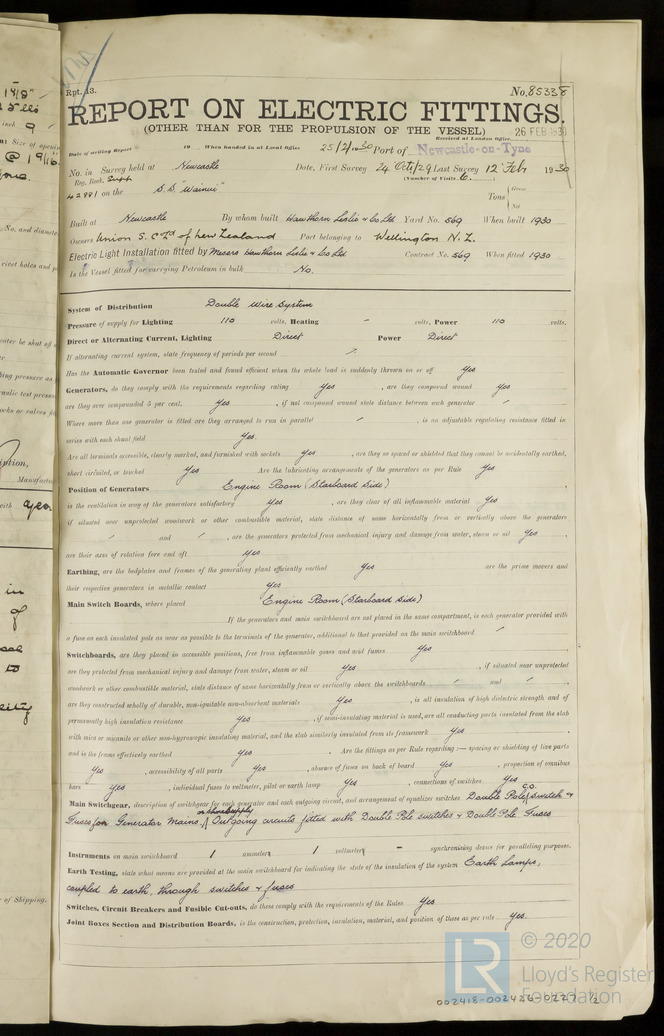 Rpt. 13.
No. 85338
REPORT ON ELECTRIC FITTINGS.
(OTHER THAN FOR THE PROPULSION OF THE VESSEL)
Received at London Office
26 FEB 1930
Date of writing Report 19 When handed in at Local Office 25/2/1930 Port of Newcastle-on-Tyne
No. in Survey held at Newcastle Date, First Survey 24 Oct/29 Last Survey 12 Feb 1930
Reg. Book. Supt (Number of Visits 6.)
42891 on the S.S. "Wainui" Tons Gross Net
Built at Newcastle By whom built Hawthorn Leslie & Co Ltd Yard No. 569 When built 1930
Owners Union S. C. Ld of New Zealand Port belonging to Wellington N.Z.
Electric Light Installation fitted by Messrs Hawthorn Leslie & Co Ltd Contract No. 569 When fitted 1930
Is the Vessel fitted for carrying Petroleum in bulk No.
System of Distribution Double Wire System
Pressure of supply for Lighting 110 volts, Heating - volts, Power 110 volts.
Direct or Alternating Current, Lighting Direct Power Direct
If alternating current system, state frequency of periods per second
Has the Automatic Governor been tested and found efficient when the whole load is suddenly thrown on or off Yes
Generators, do they comply with the requirements regarding rating Yes, are they compound wound Yes
are they over compounded 5 per cent. Yes, if not compound wound state distance between each generator
Where more than one generator is fitted are they arranged to run in parallel, is an adjustable regulating resistance fitted in
series with each shunt field Yes.
Are all terminals accessible, clearly marked, and furnished with sockets Yes, are they so spaced or shielded that they cannot be accidentally earthed,
short circuited, or touched Yes Are the lubricating arrangements of the generators as per Rule Yes
Position of Generators Engine Room (Starboard Side)
is the ventilation in way of the generators satisfactory Yes, are they clear of all inflammable material Yes
if situated near unprotected woodwork or other combustible material, state distance of same horizontally from or vertically above the generators
and, are the generators protected from mechanical injury and damage from water, steam or oil Yes,
are their axes of rotation fore and aft Yes
Earthing, are the bedplates and frames of the generating plant efficiently earthed Yes are the prime movers and
their respective generators in metallic contact Yes
Main Switch Boards, where placed Engine Room (Starboard Side)
If the generators and main switchboard are not placed in the same compartment, is each generator provided with
a fuse on each insulated pole as near as possible to the terminals of the generator, additional to that provided on the main switchboard
Switchboards, are they placed in accessible positions, free from inflammable gases and acid fumes Yes
are they protected from mechanical injury and damage from water, steam or oil Yes, if situated near unprotected
woodwork or other combustible material, state distance of same horizontally from or vertically above the switchboards and
are they constructed wholly of durable, non-ignitable non-absorbent materials Yes, is all insulation of high dielectric strength and of
permanently high insulation resistance Yes, if semi-insulating material is used, are all conducting parts insulated from the slab
with mica or micanite or other non-hygroscopic insulating material, and the slab similarly insulated from its framework Yes
and is the frame effectively earthed Yes. Are the fittings as per Rule regarding :— spacing or shielding of live parts
Yes, accessibility of all parts Yes, absence of fuses on back of board Yes, proportion of omnibus
bars Yes, individual fuses to voltmeter, pilot or earth lamp Yes, connections of switches Yes
Main Switchgear, description of switchgear for each generator and each outgoing circuit, and arrangement of equalizer switches Double Pole c.o. switch &
Fuses for Generator Mains or Shore Supply Outgoing circuits fitted with Double Pole switches & Double Pole Fuses
Instruments on main switchboard 1 ammeter 1 voltmeter - synchronising device for paralleling purposes.
Earth Testing, state what means are provided at the main switchboard for indicating the state of the insulation of the system Earth Lamps,
coupled to earth, through switches & fuses
Switches, Circuit Breakers and Fusible Cut-outs, do these comply with the requirements of the Rules Yes
Joint Boxes Section and Distribution Boards, is the construction, protection, insulation, material, and position of these as per rule Yes.
© 2020
LR
Lloyd's Register
Foundation
002418-002426-0227 1/2